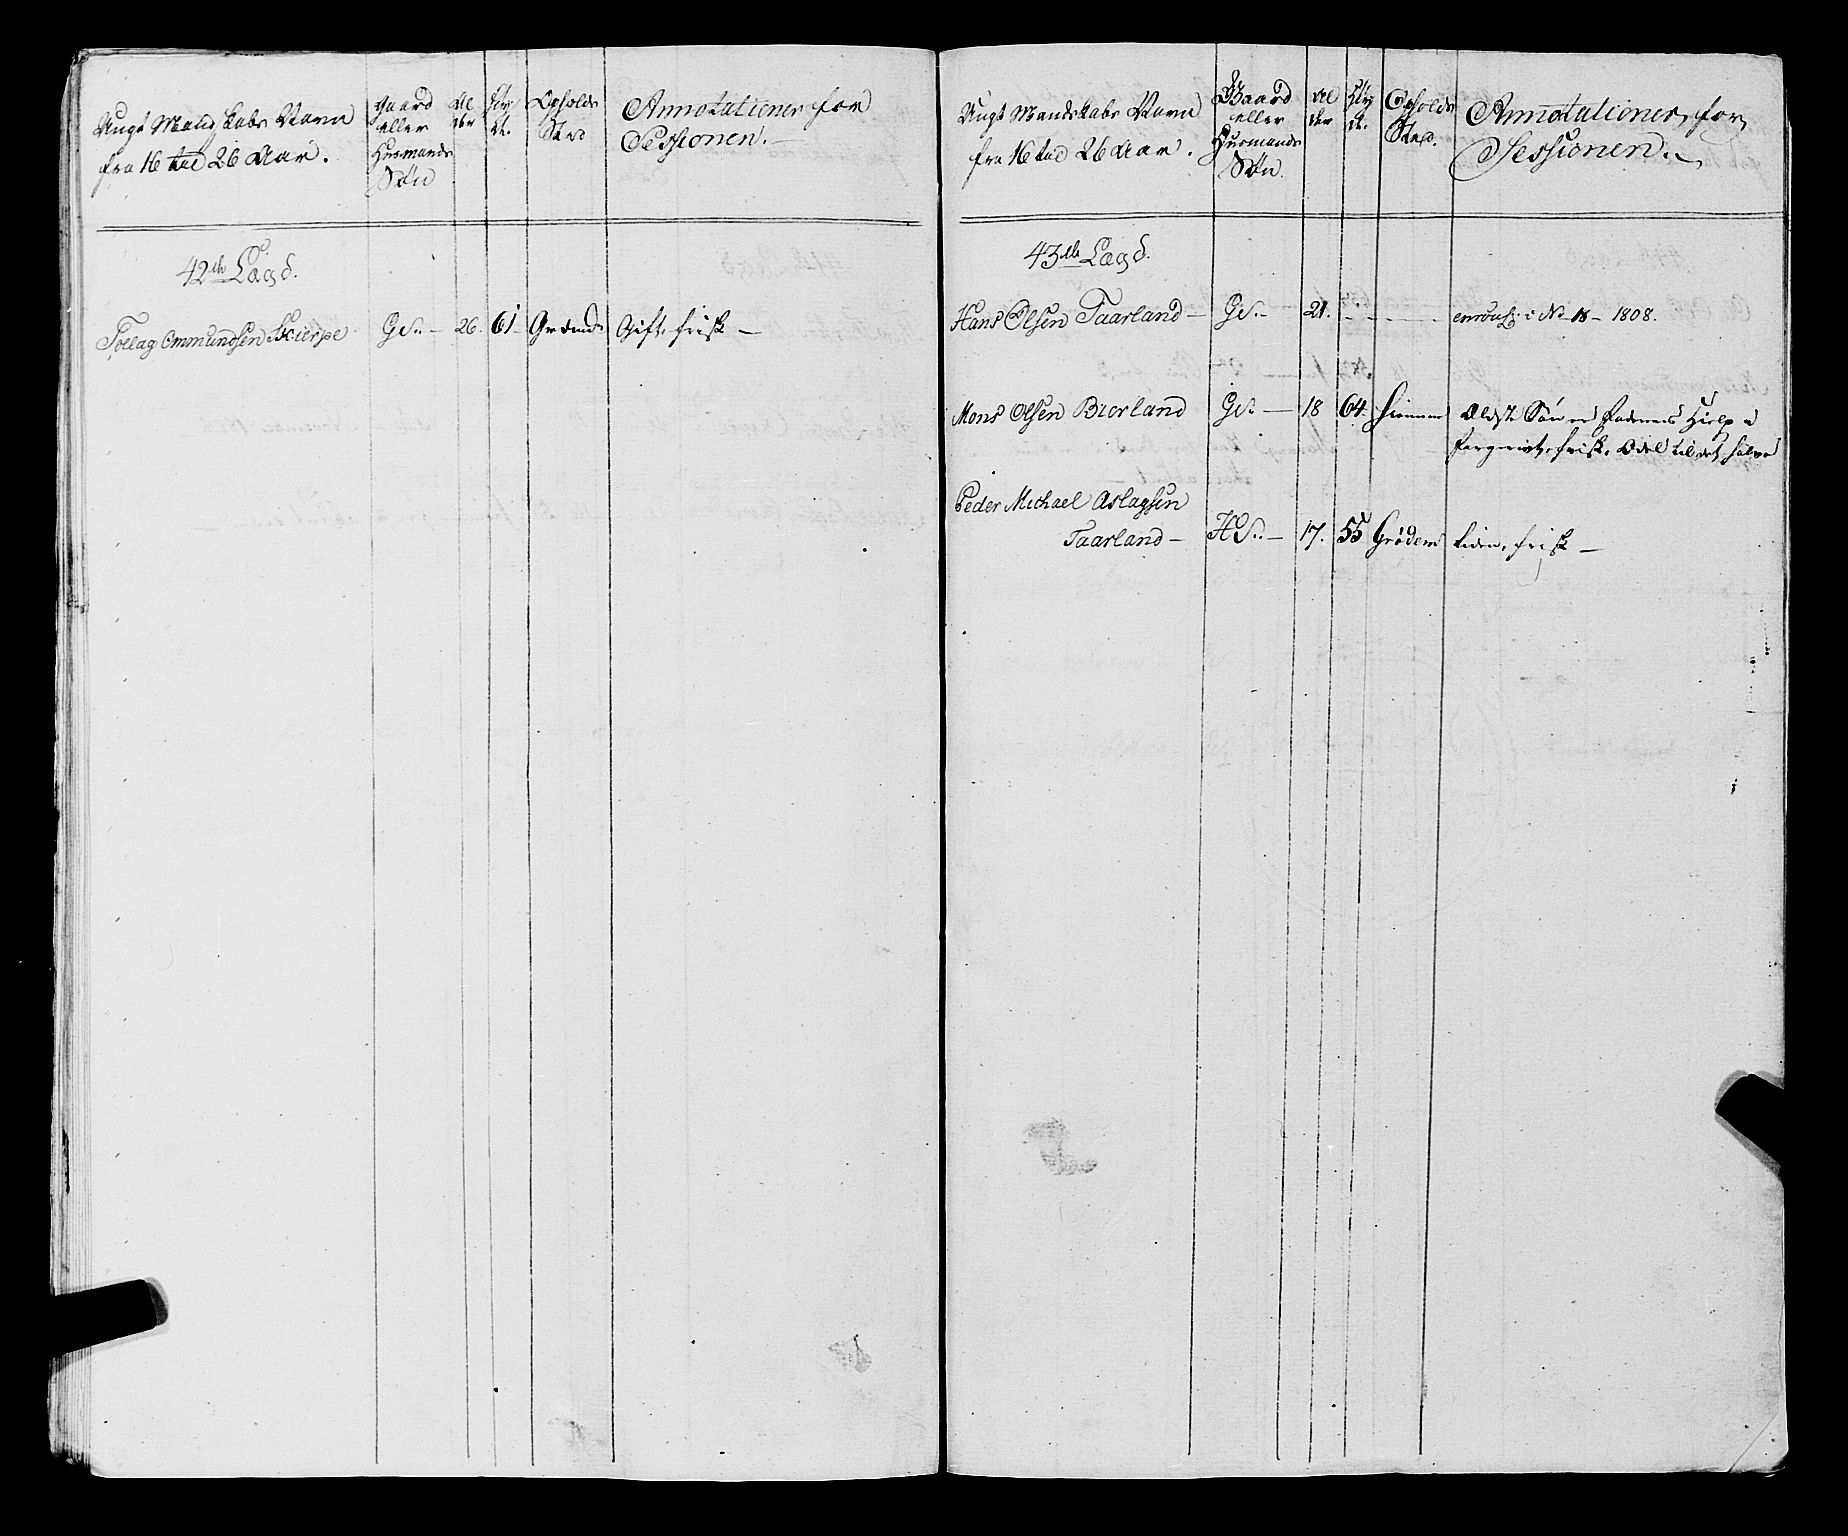 Ungt Mandskabs Navn
fra 16 til 26 Aar.
Gaard
eller
Husmands
Søn
Al
der
Høy
de.
Opholds
Sted
Annotationer for
Sessionen.
42de Lægd.
Tollag Ommundsen Skierpe GS. 26. 61 Grødem Gift, frisk
Ungt Mandskabs Navn
fra 16 til 26 Aar.
Gaard
eller
Husmands
Søn.
Al
der
Høy
de.
Opholds
Sted.
Annotationer for
Sessionen.
43de Lægd.
Hans Olsen Taarland GS. 21. i No 18 - 1808.
Mons Olsen Bierland GS. 18 64. hiemme Ældste Søn er Faderens Hielp
frisk. Odel til det halve
Peder Michael Aslagsen
Taarland HS. 17. 55 Grødem liden, frisk